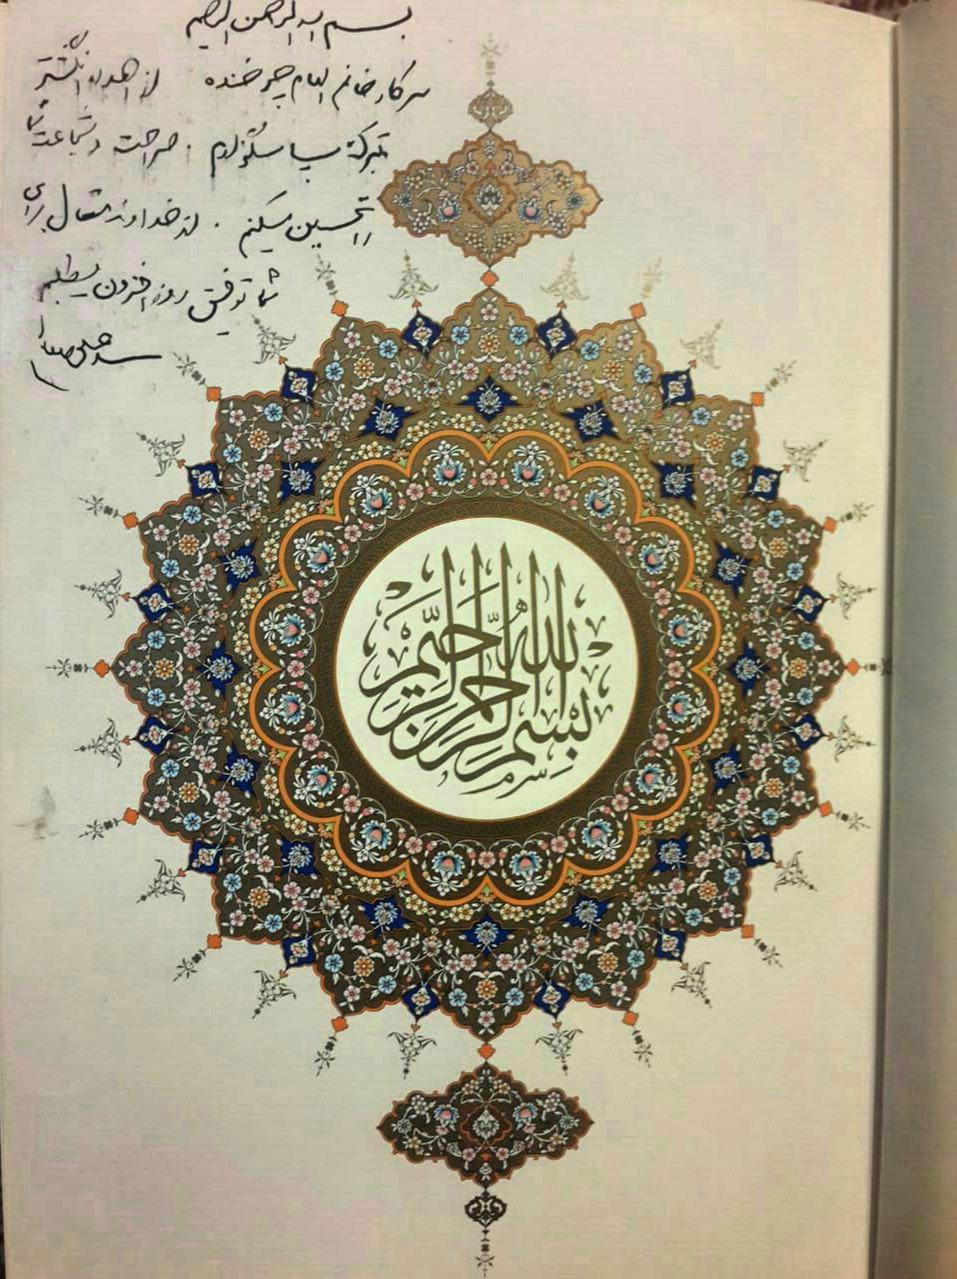 بسم الله الرحمن الرحیم
سرکار خانم الهام چرخنده از اهداء انگشتر
تبرک سپاسگزارم. صراحت و شجاعت شما
را تحسین میکنم. از خداوند متعال برای
شما توفیق روزافزون میطلبم
سید
بسم الله الرحمن الرحیم